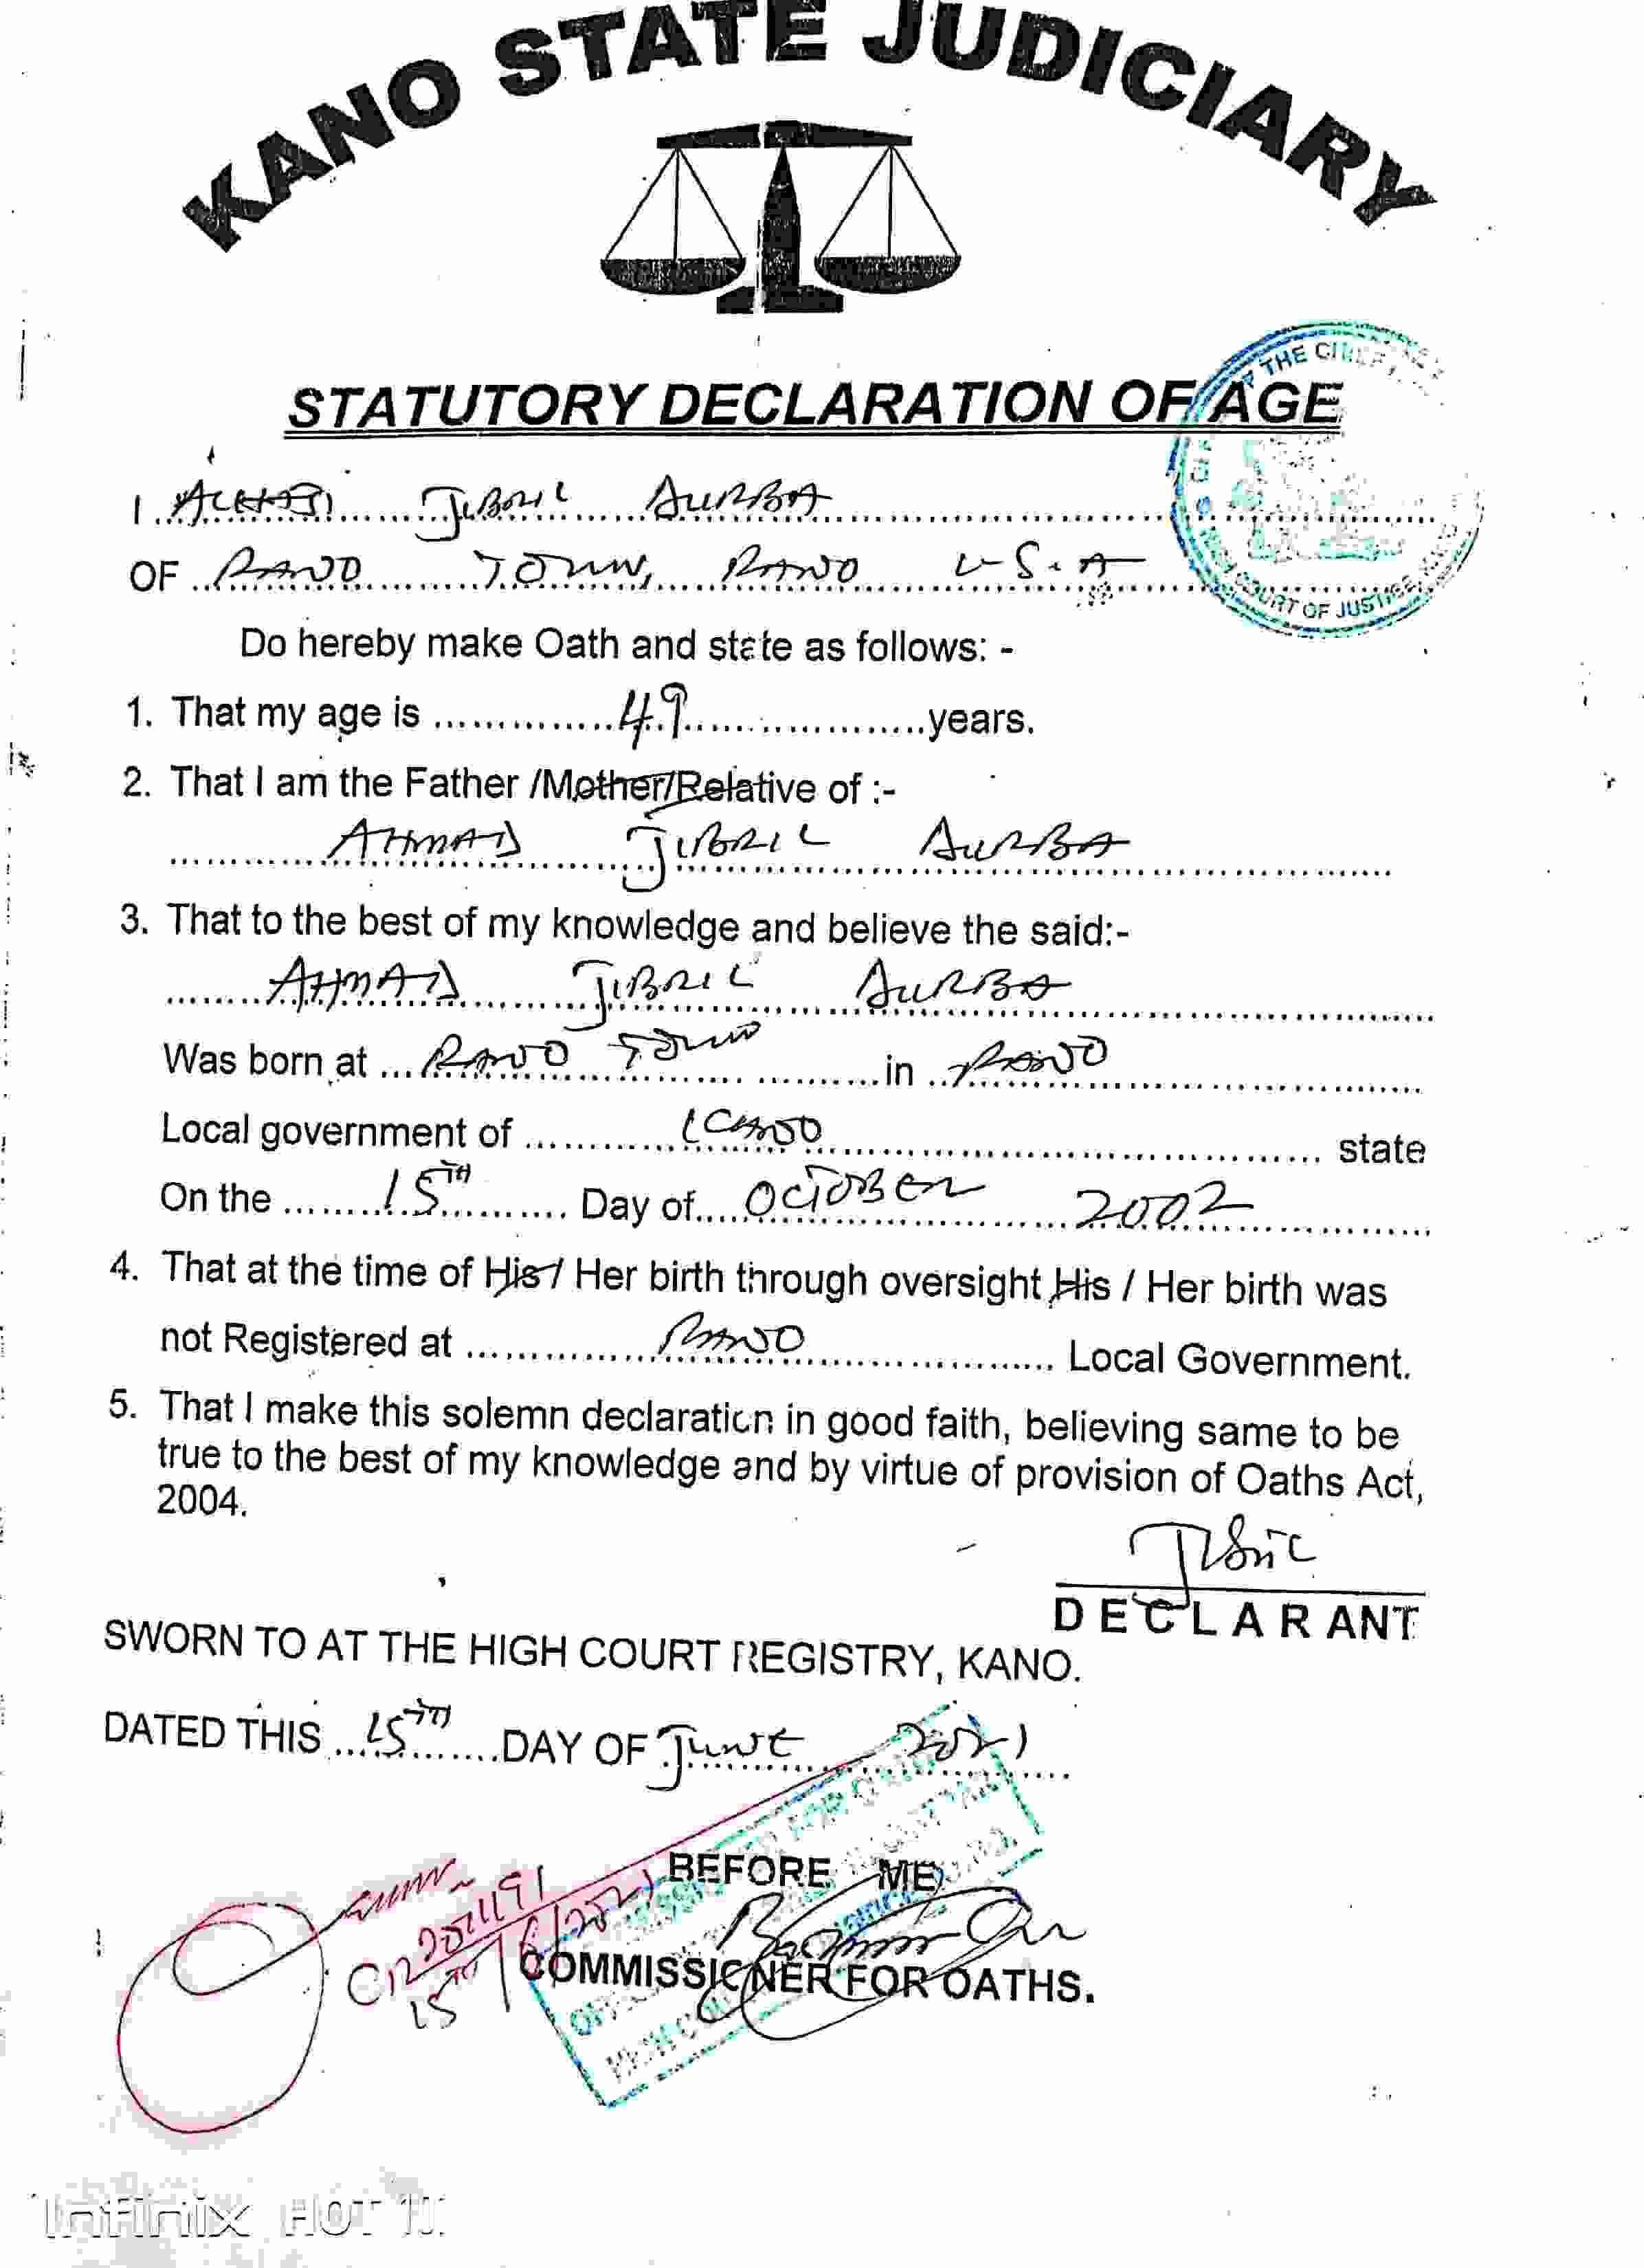 KANO STATE JUDICIARY
STATUTORY DECLARATION OF AGE
I ALHAJI JIBRIL AURBA
OF RANO TOWN, RANO L.G.A
Do hereby make Oath and state as follows: -
1. That my age is ............... 49 ............... years.
2. That I am the Father /Mother/Relative of :-
AHMAD JIBRIL AURBA
3. That to the best of my knowledge and believe the said:-
AHMAD JIBRIL AURBA
Was born at ... RANO TOWN ............ in ... RANO
Local government of ............ KANO ............ state
On the ......... 15TH ......... Day of..... OCTOBER 2002
4. That at the time of His / Her birth through oversight His / Her birth was
not Registered at ............ RANO ............ Local Government.
5. That I make this solemn declaration in good faith, believing same to be
true to the best of my knowledge and by virtue of provision of Oaths Act,
2004.
Jibril
DECLARANT
SWORN TO AT THE HIGH COURT REGISTRY, KANO.
DATED THIS ... 15TH ... DAY OF JUNE 2021
BEFORE ME
COMMISSIONER FOR OATHS.
THE CHIEF
COURT OF JUSTICE
Infinix HOT 11